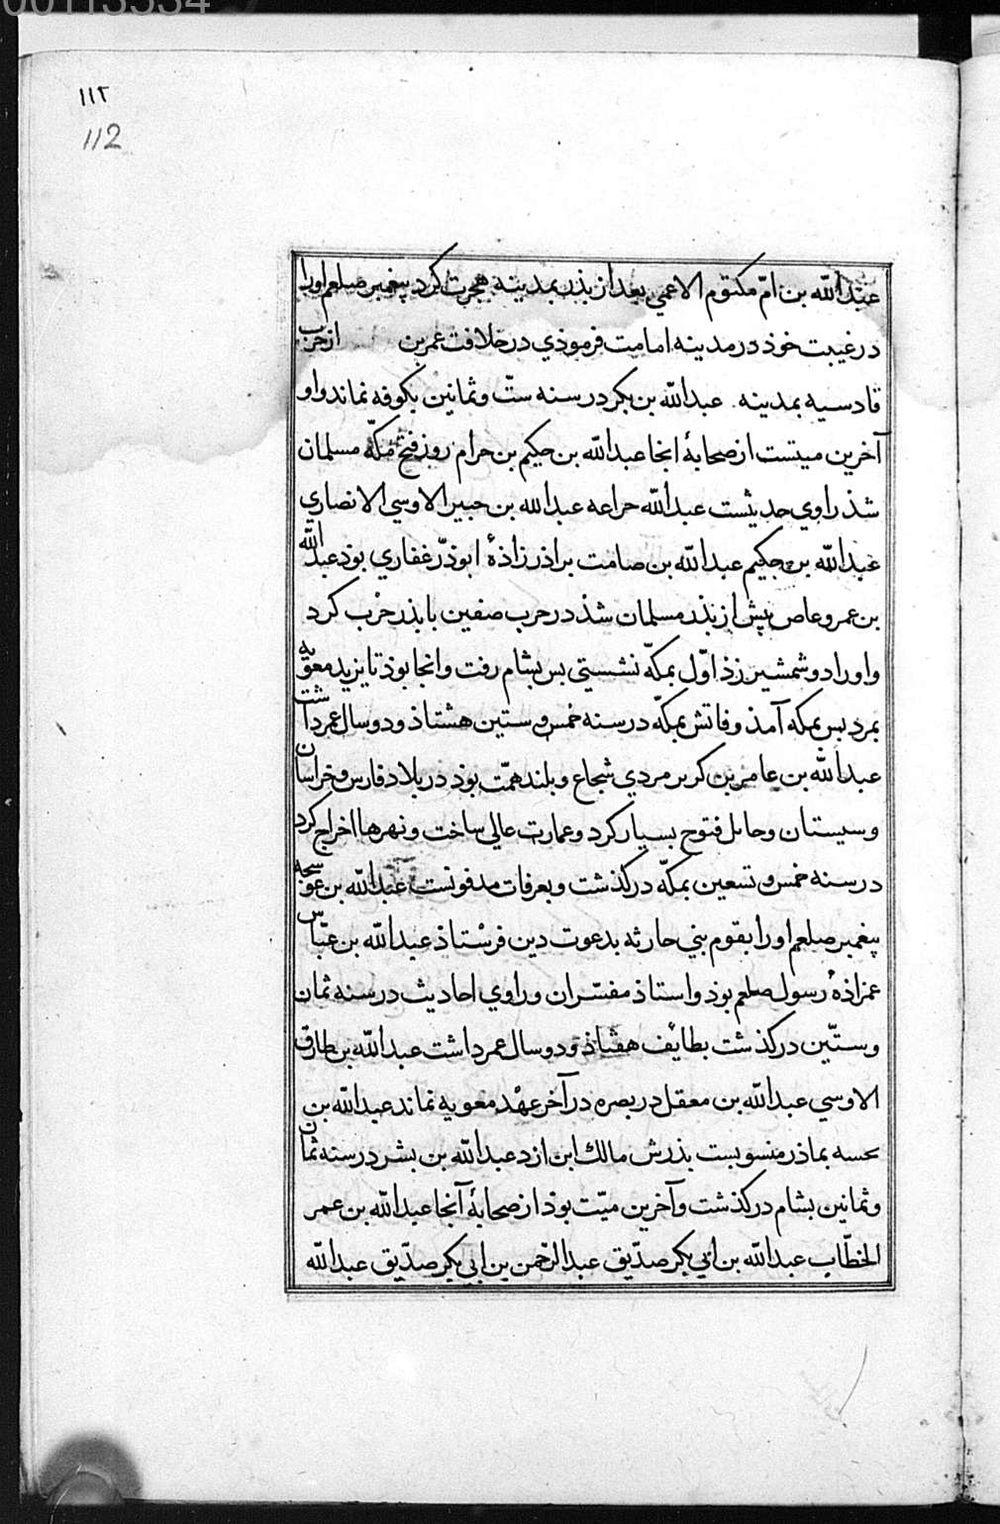 00113534
١١٢
112
عبدالله بن امّ مكتوم الاعمي بعد از بذر بمدينه هجرت كرد پيغمبر صلعم اورا
در غيبت خوذ در مدينه امامت فرموذي در خلافت عمر بن از حرب
قادسيه بمدينه عبدالله بن بكر در سنه ستّ وثمانين بكوفه نماند واو
آخرين ميتست از صحابهٔ انجا عبدالله بن حكيم بن حرام روز فتح مكّه مسلمان
شذ راوي حديثست عبدالله حراعه عبدالله بن جبير الاوسي الانصاري
عبدالله بن حكيم عبدالله بن صامت براذر زاذهٔ ابوذرّ غفاري بوذ عبدالله
بن عمرو عاص پيش از بذر مسلمان شذ در حرب صفين با بذر حرب كرد
واورا دو شمشير زذ اوّل بمكّه نشستي بس بشام رفت وانجا بوذ تا يزيد معويه
بمرد بس بمكه آمذ وفاتش بمكّه در سنه خمس و ستين هشتاذ ودو سال عمر داشت
عبدالله بن عامر بن كربر مردي شجاع وبلند همّت بوذ در بلاد فارس وخراسان
وسيستان وحابل فتوح بسيار كرد وعمارت عالي ساخت ونهرها اخراج كرد
در سنه خمس و تسعين بمكّه دركذشت وبعرفات مدفونست عبدالله بن عوسجه
پيغمبر صلعم اورا بقوم بني حارثه بدعوت دين فرستاذ عبدالله بن عبّاس
عمزاذهٔ رسول صلعم بوذ واستاذ مفسّران وراوي احاديث در سنه ثمان
وستّين دركذشت بطايف هفتاذ ودو سال عمر داشت عبدالله بن طارق
الاوسي عبدالله بن معقل در بصره در آخر عهد معويه نماند عبدالله بن
بحسه بماذر منسوبست بذرش مالك ابن ازد عبدالله بن بشر در سنه ثمان
وثمانين بشام دركذشت وآخرين ميّت بوذ از صحابهٔ آنجا عبدالله بن عمر
الخطّاب عبدالله بن ابي بكر صدّيق عبدالرحمن بن ابي بكر صدّيق عبدالله